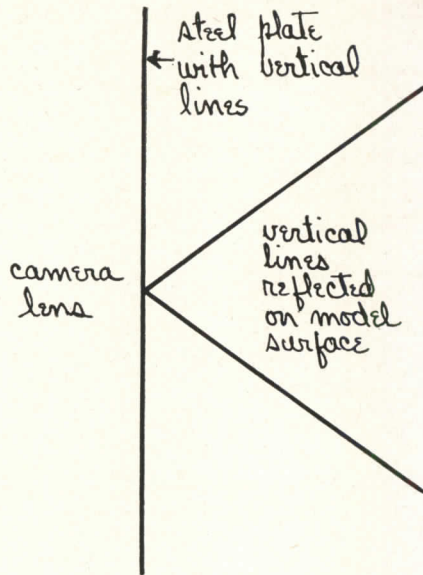 steel plate
with vertical
lines
camera
lens
vertical
lines
reflected
on model
surface